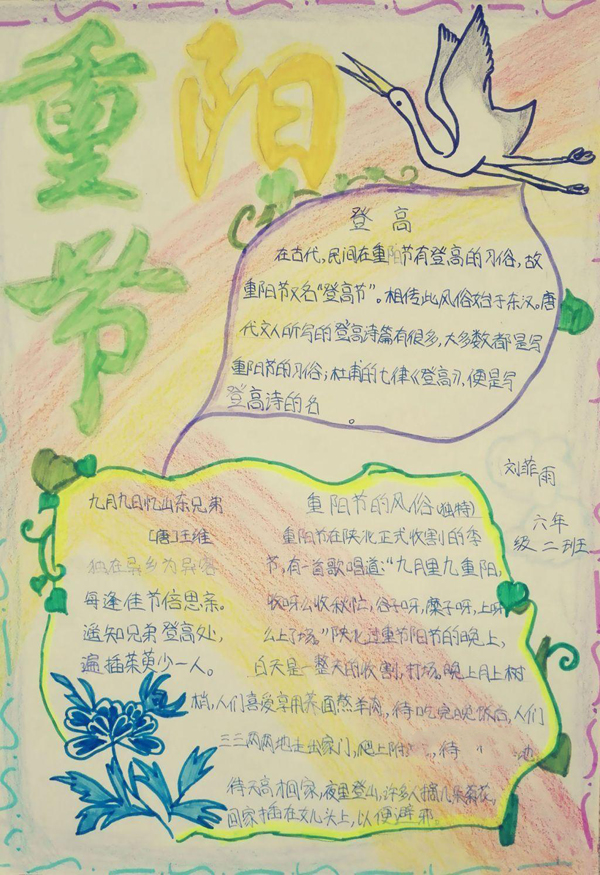 重阳节
登高
在古代,民间在重阳节有登高的习俗,故
重阳节又名"登高节"。相传此风俗始于东汉。唐
代文人所写的登高诗篇有很多,大多数都是写
重阳节的习俗;杜甫的七律《登高》,便是写
登高诗的名
。
刘菲雨
六年
级二班
九月九日忆山东兄弟
[唐]王维
独在异乡为异客
每逢佳节倍思亲。
遥知兄弟登高处,
遍插茱萸少一人。
重阳节的风俗(独特)
重阳节在陕北正式收割的季
节,有一首歌唱道:"九月里九重阳,
收呀么收秋忙,谷子呀,糜子呀,上呀
么上了场。"陕北过重节阳节的晚上,
白天是一整天的收割,打场。晚上月上树
梢,人们喜爱享用荞面熬羊肉,待吃完晚饭后,人们
三三两两地走出家门,爬上附 待 地
待天高才回家,夜里登山,许多人摘几朵菊花,
回家插在女儿头上,以便避邪。